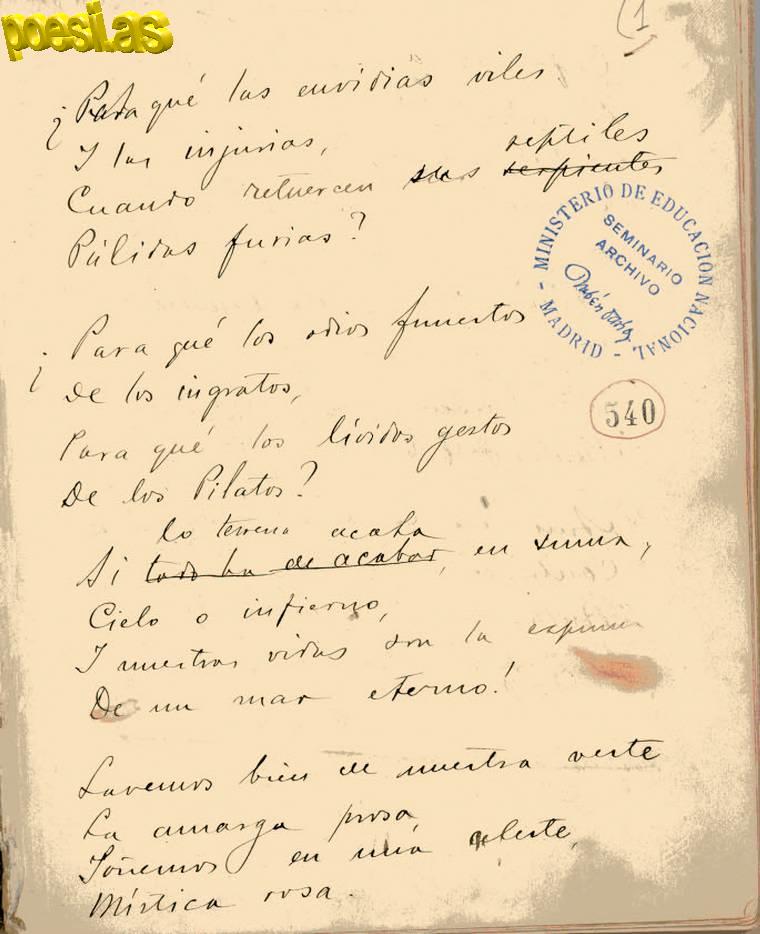 poesi.as
(1
¿Para qué las envidias viles
I las injurias,
reptiles
Cuando retuercen sus serpientes
Pálidas furias?
MINISTERIO DE EDUCACION NACIONAL
- MADRID -
SEMINARIO
ARCHIVO
Rubén Darío
¿Para qué los odios funestos
De los ingratos,
540
Para qué los lívidos gestos
De los Pilatos?
lo terreno acaba
Si todo ha de acabar, en suma,
Cielo o infierno,
I nuestras vidas son la espuma
De un mar eterno!
Lavemos bien de nuestra veste
La amarga prosa
Soñemos en una celeste,
Mística rosa.